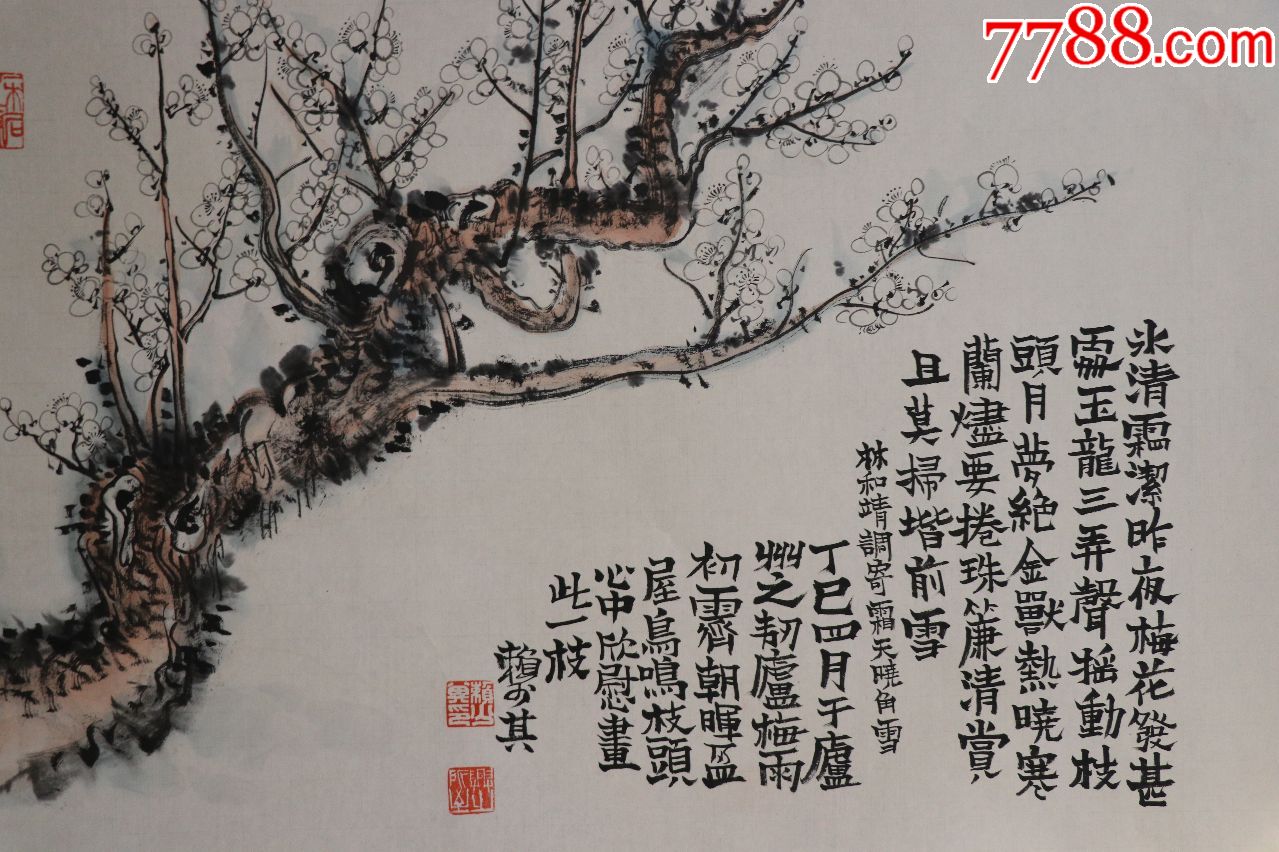 7788.com
冰清霜潔昨夜梅花發甚
處玉龍三弄聲搖動枝
頭月夢絕金獸熱曉寒
蘭燼要捲珠簾清賞
且莫掃堦前雪
林和靖調寄霜天曉角雪
丁巳四月于廬
州之韧廬梅雨
初霽朝暉盈
屋鳥鳴枝頭
心中欣慰畫
此一枝
賴少其
木石
賴少其印